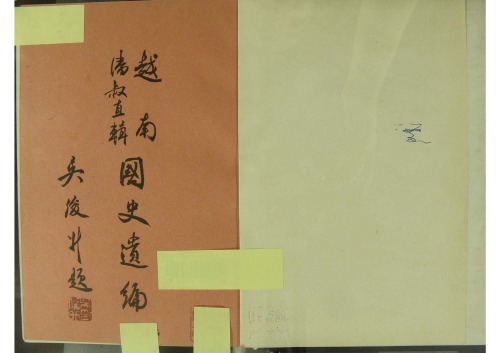 越南國史遺編
潘叔直輯
吳俊升題